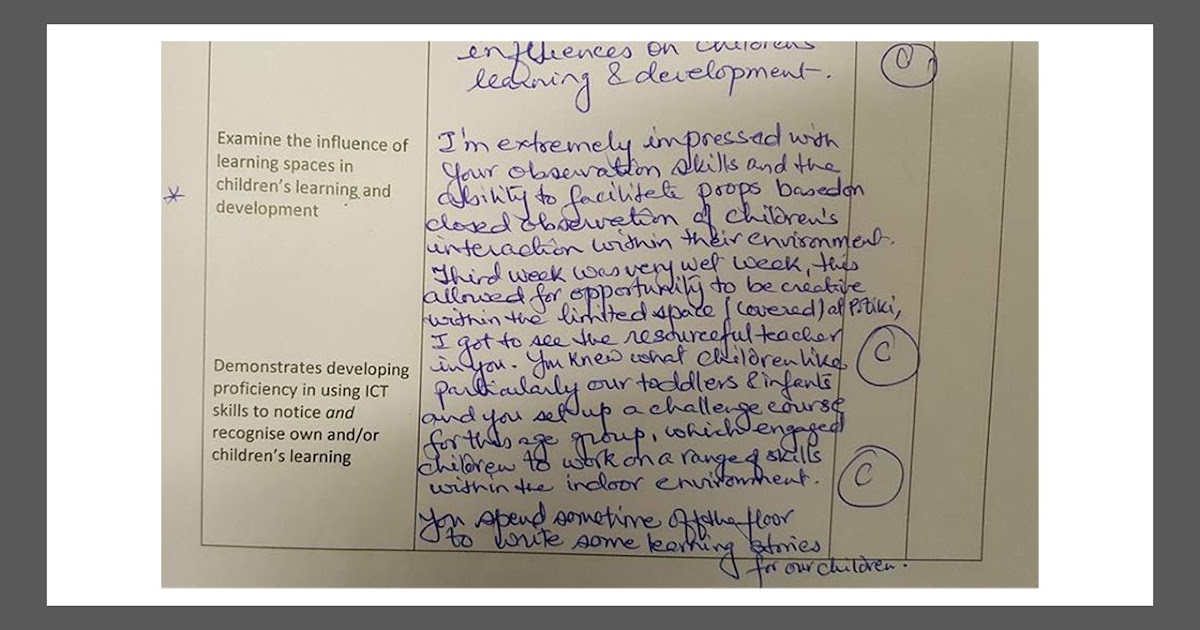 enfluences on children's
learning & development.
C
Examine the influence of
learning spaces in
children's learning and
development
*
I'm extremely impressed with
your observation skills and the
ability to facilitate props based on
closed observation of children's
interaction within their environment.
Third week was very wet week, this
allowed for opportunity to be creative
within the limited space (covered) at P.tiki,
I got to see the resourceful teacher
in you. You knew what children like
particularly our toddlers & infants
and you set up a challenge course
for this age group, which engaged
children to work on a range of skills
within the indoor environment.
C
Demonstrates developing
proficiency in using ICT
skills to notice and
recognise own and/or
children's learning
You spend sometime off the floor
to write some learning stories
for our children.
C